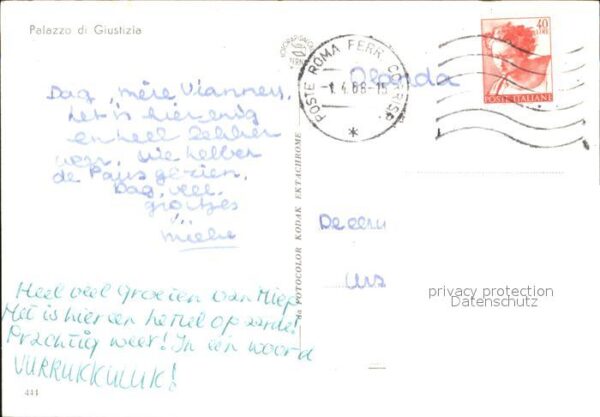 Palazzo di Giustizia
Dag, mère Vianney,
het is hier enig
en heel lekker
weer, we hebben
de Paus gezien.
Dag, veel
groetjes
Mieke
Heel veel Groeten van Miep
Het is hier een hemel op aarde!
Prachtig weer! In één woord
VURRUKKULUK!
444
da FOTOCOLOR KODAK EKTACHROME
POSTE ROMA FERR. CORRISP.
-1.4.68-15
Olanda
40
LIRE
POSTE ITALIANE
De eerw
Urs
privacy protection
Datenschutz